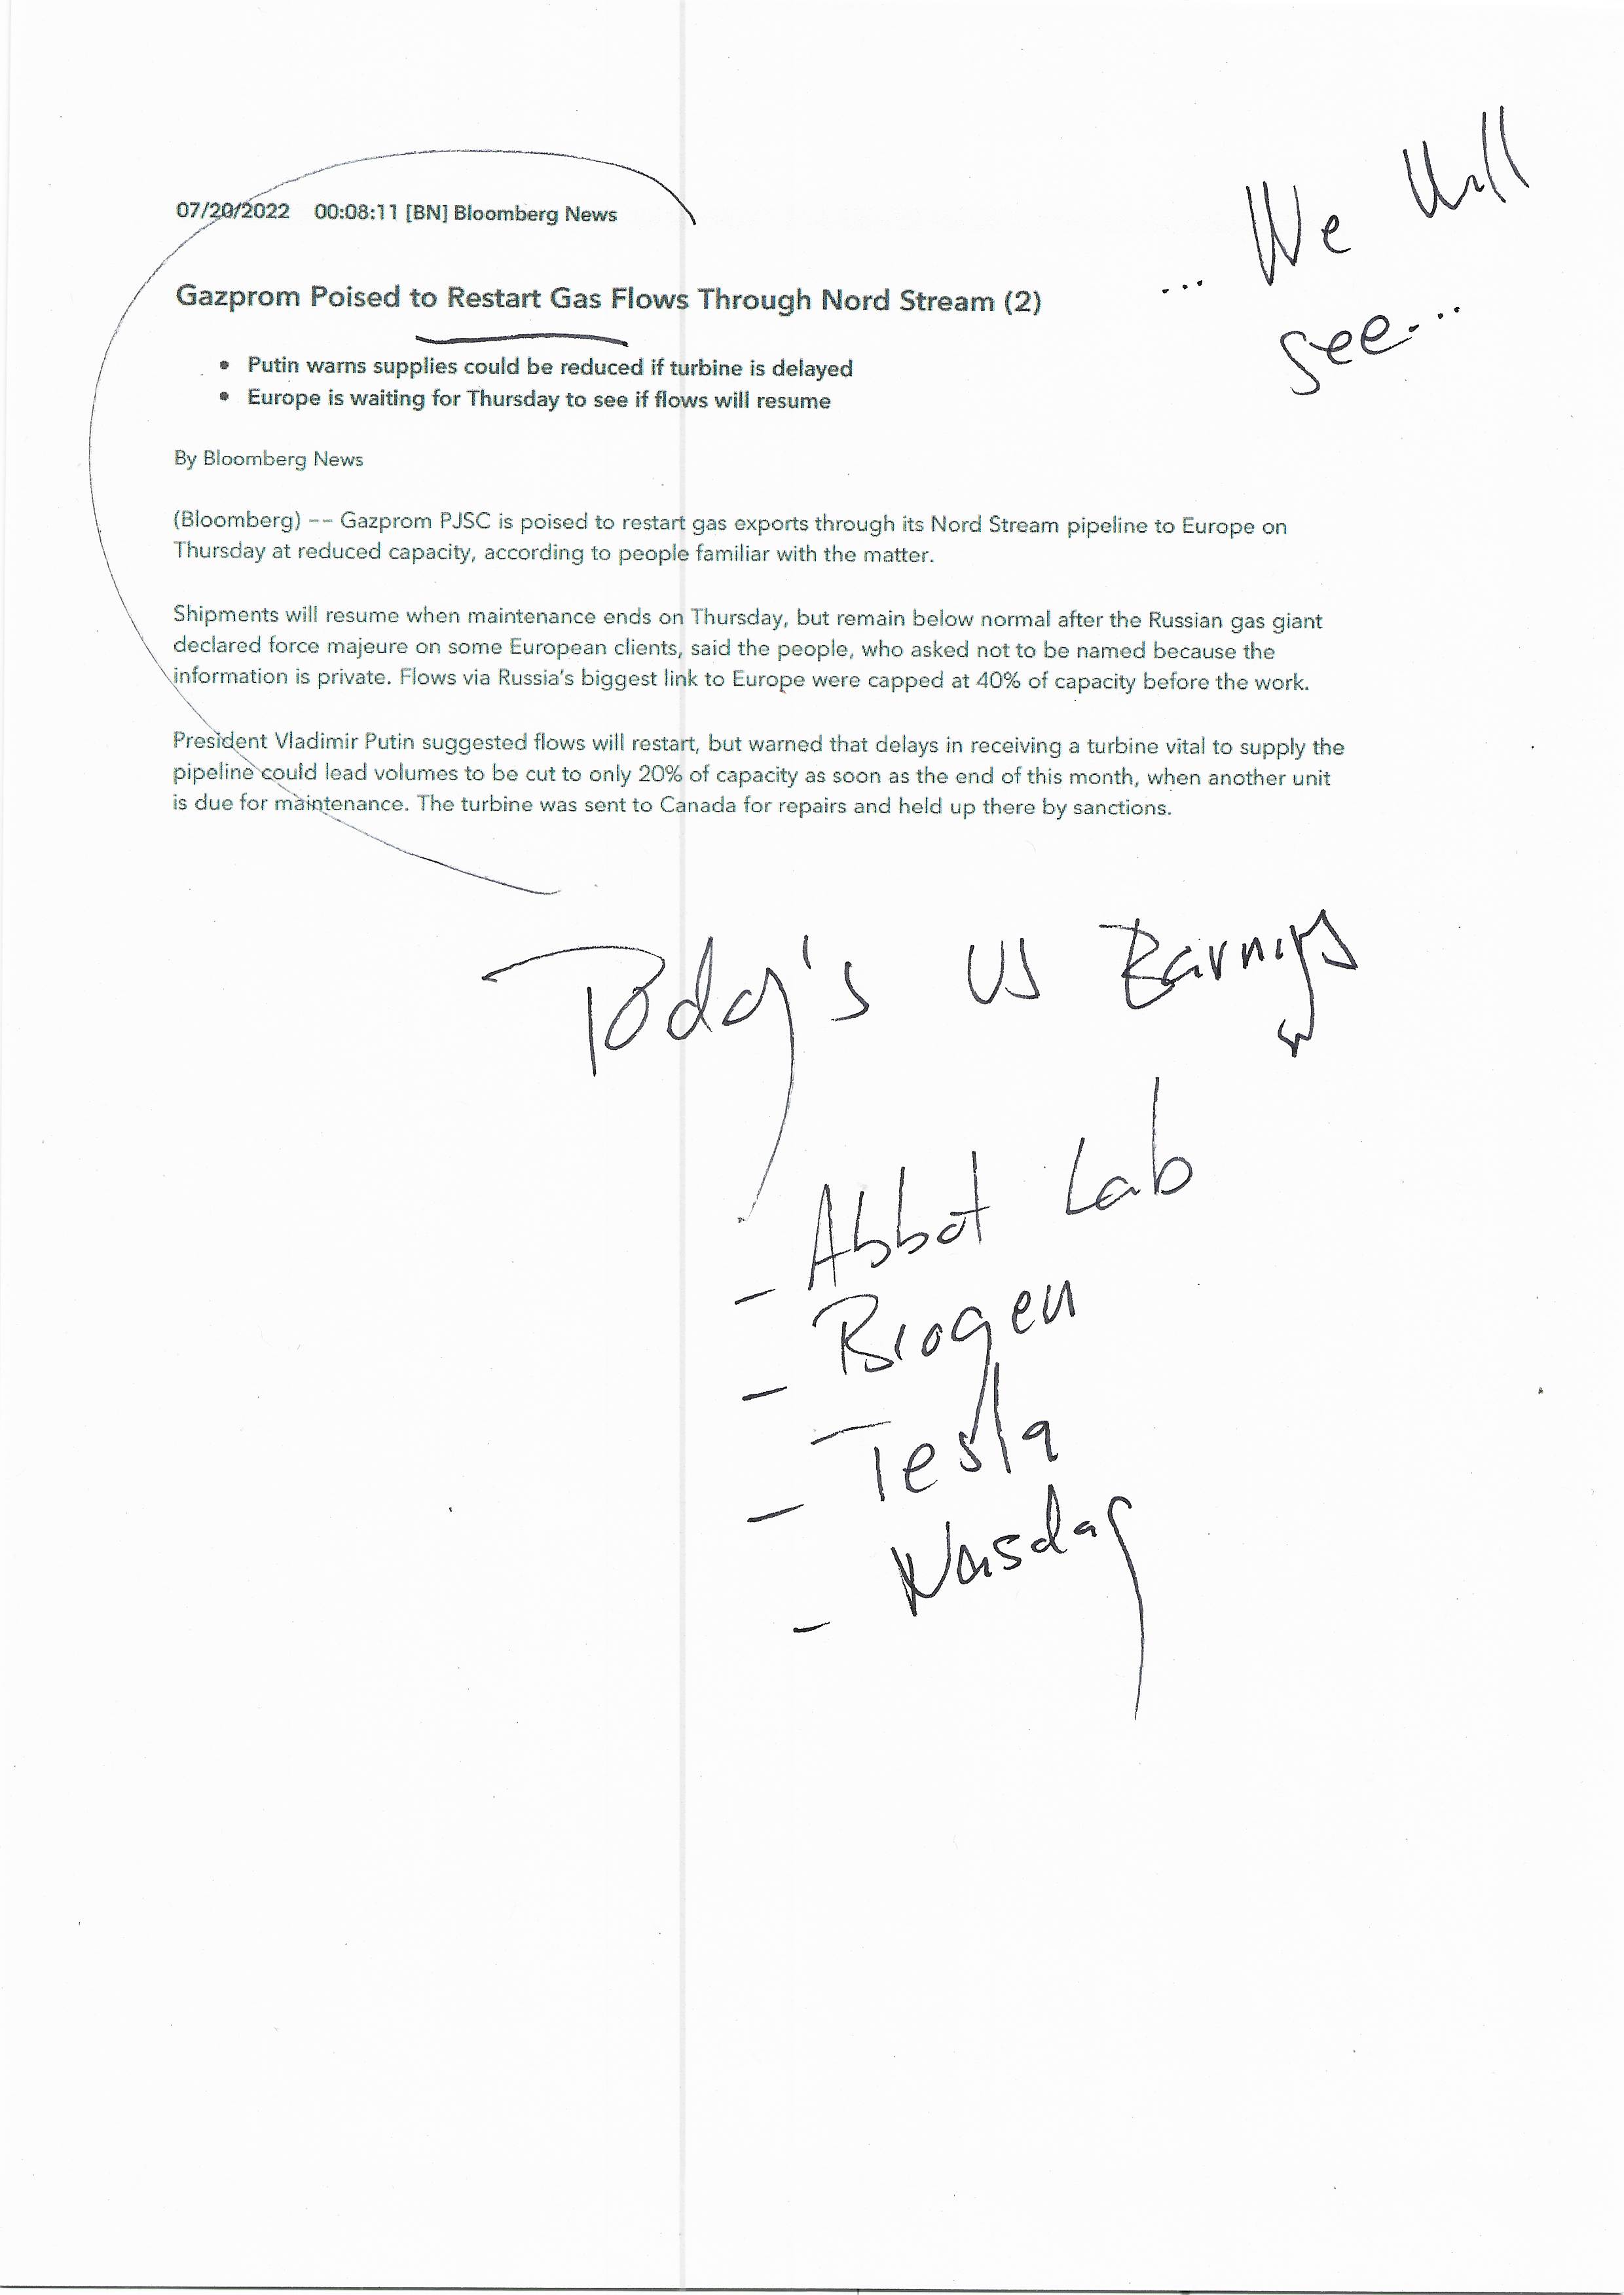 ... We will
see...
07/20/2022 00:08:11 [BN] Bloomberg News
Gazprom Poised to Restart Gas Flows Through Nord Stream (2)
• Putin warns supplies could be reduced if turbine is delayed
• Europe is waiting for Thursday to see if flows will resume
By Bloomberg News
(Bloomberg) -- Gazprom PJSC is poised to restart gas exports through its Nord Stream pipeline to Europe on
Thursday at reduced capacity, according to people familiar with the matter.
Shipments will resume when maintenance ends on Thursday, but remain below normal after the Russian gas giant
declared force majeure on some European clients, said the people, who asked not to be named because the
information is private. Flows via Russia's biggest link to Europe were capped at 40% of capacity before the work.
President Vladimir Putin suggested flows will restart, but warned that delays in receiving a turbine vital to supply the
pipeline could lead volumes to be cut to only 20% of capacity as soon as the end of this month, when another unit
is due for maintenance. The turbine was sent to Canada for repairs and held up there by sanctions.
Today's US Earnings
- Abbot Lab
- Biogen
- Tesla
- Nasdaq